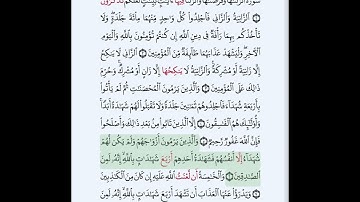 سُورَةٌ أَنزَلْنَٰهَا وَفَرَضْنَٰهَا وَأَنزَلْنَا فِيهَآ ءَايَٰتٍۭ بَيِّنَٰتٍ لَّعَلَّكُمْ تَذَكَّرُونَ
١ ٱلزَّانِيَةُ وَٱلزَّانِى فَٱجْلِدُوا۟ كُلَّ وَٰحِدٍ مِّنْهُمَا مِا۟ئَةَ جَلْدَةٍ وَلَا
تَأْخُذْكُم بِهِمَا رَأْفَةٌ فِى دِينِ ٱللَّهِ إِن كُنتُمْ تُؤْمِنُونَ بِٱللَّهِ وَٱلْيَوْمِ
ٱلْءَاخِرِ وَلْيَشْهَدْ عَذَابَهُمَا طَآئِفَةٌ مِّنَ ٱلْمُؤْمِنِينَ ٢ ٱلزَّانِى لَا يَنكِحُ
إِلَّا زَانِيَةً أَوْ مُشْرِكَةً وَٱلزَّانِيَةُ لَا يَنكِحُهَآ إِلَّا زَانٍ أَوْ مُشْرِكٌ وَحُرِّمَ
ذَٰلِكَ عَلَى ٱلْمُؤْمِنِينَ ٣ وَٱلَّذِينَ يَرْمُونَ ٱلْمُحْصَنَٰتِ ثُمَّ لَمْ يَأْتُوا۟
بِأَرْبَعَةِ شُهَدَآءَ فَٱجْلِدُوهُمْ ثَمَٰنِينَ جَلْدَةً وَلَا تَقْبَلُوا۟ لَهُمْ شَهَٰدَةً أَبَدًا
وَأُو۟لَٰٓئِكَ هُمُ ٱلْفَٰسِقُونَ ٤ إِلَّا ٱلَّذِينَ تَابُوا۟ مِنۢ بَعْدِ ذَٰلِكَ وَأَصْلَحُوا۟
فَإِنَّ ٱللَّهَ غَفُورٌ رَّحِيمٌ ٥ وَٱلَّذِينَ يَرْمُونَ أَزْوَٰجَهُمْ وَلَمْ يَكُن لَّهُمْ
شُهَدَآءُ إِلَّآ أَنفُسُهُمْ فَشَهَٰدَةُ أَحَدِهِمْ أَرْبَعُ شَهَٰدَٰتٍۭ بِٱللَّهِ إِنَّهُۥ لَمِنَ
ٱلصَّٰدِقِينَ ٦ وَٱلْخَٰمِسَةُ أَنَّ لَعْنَتَ ٱللَّهِ عَلَيْهِ إِن كَانَ مِنَ ٱلْكَٰذِبِينَ
٧ وَيَدْرَؤُا۟ عَنْهَا ٱلْعَذَابَ أَن تَشْهَدَ أَرْبَعَ شَهَٰدَٰتٍۭ بِٱللَّهِ إِنَّهُۥ لَمِنَ